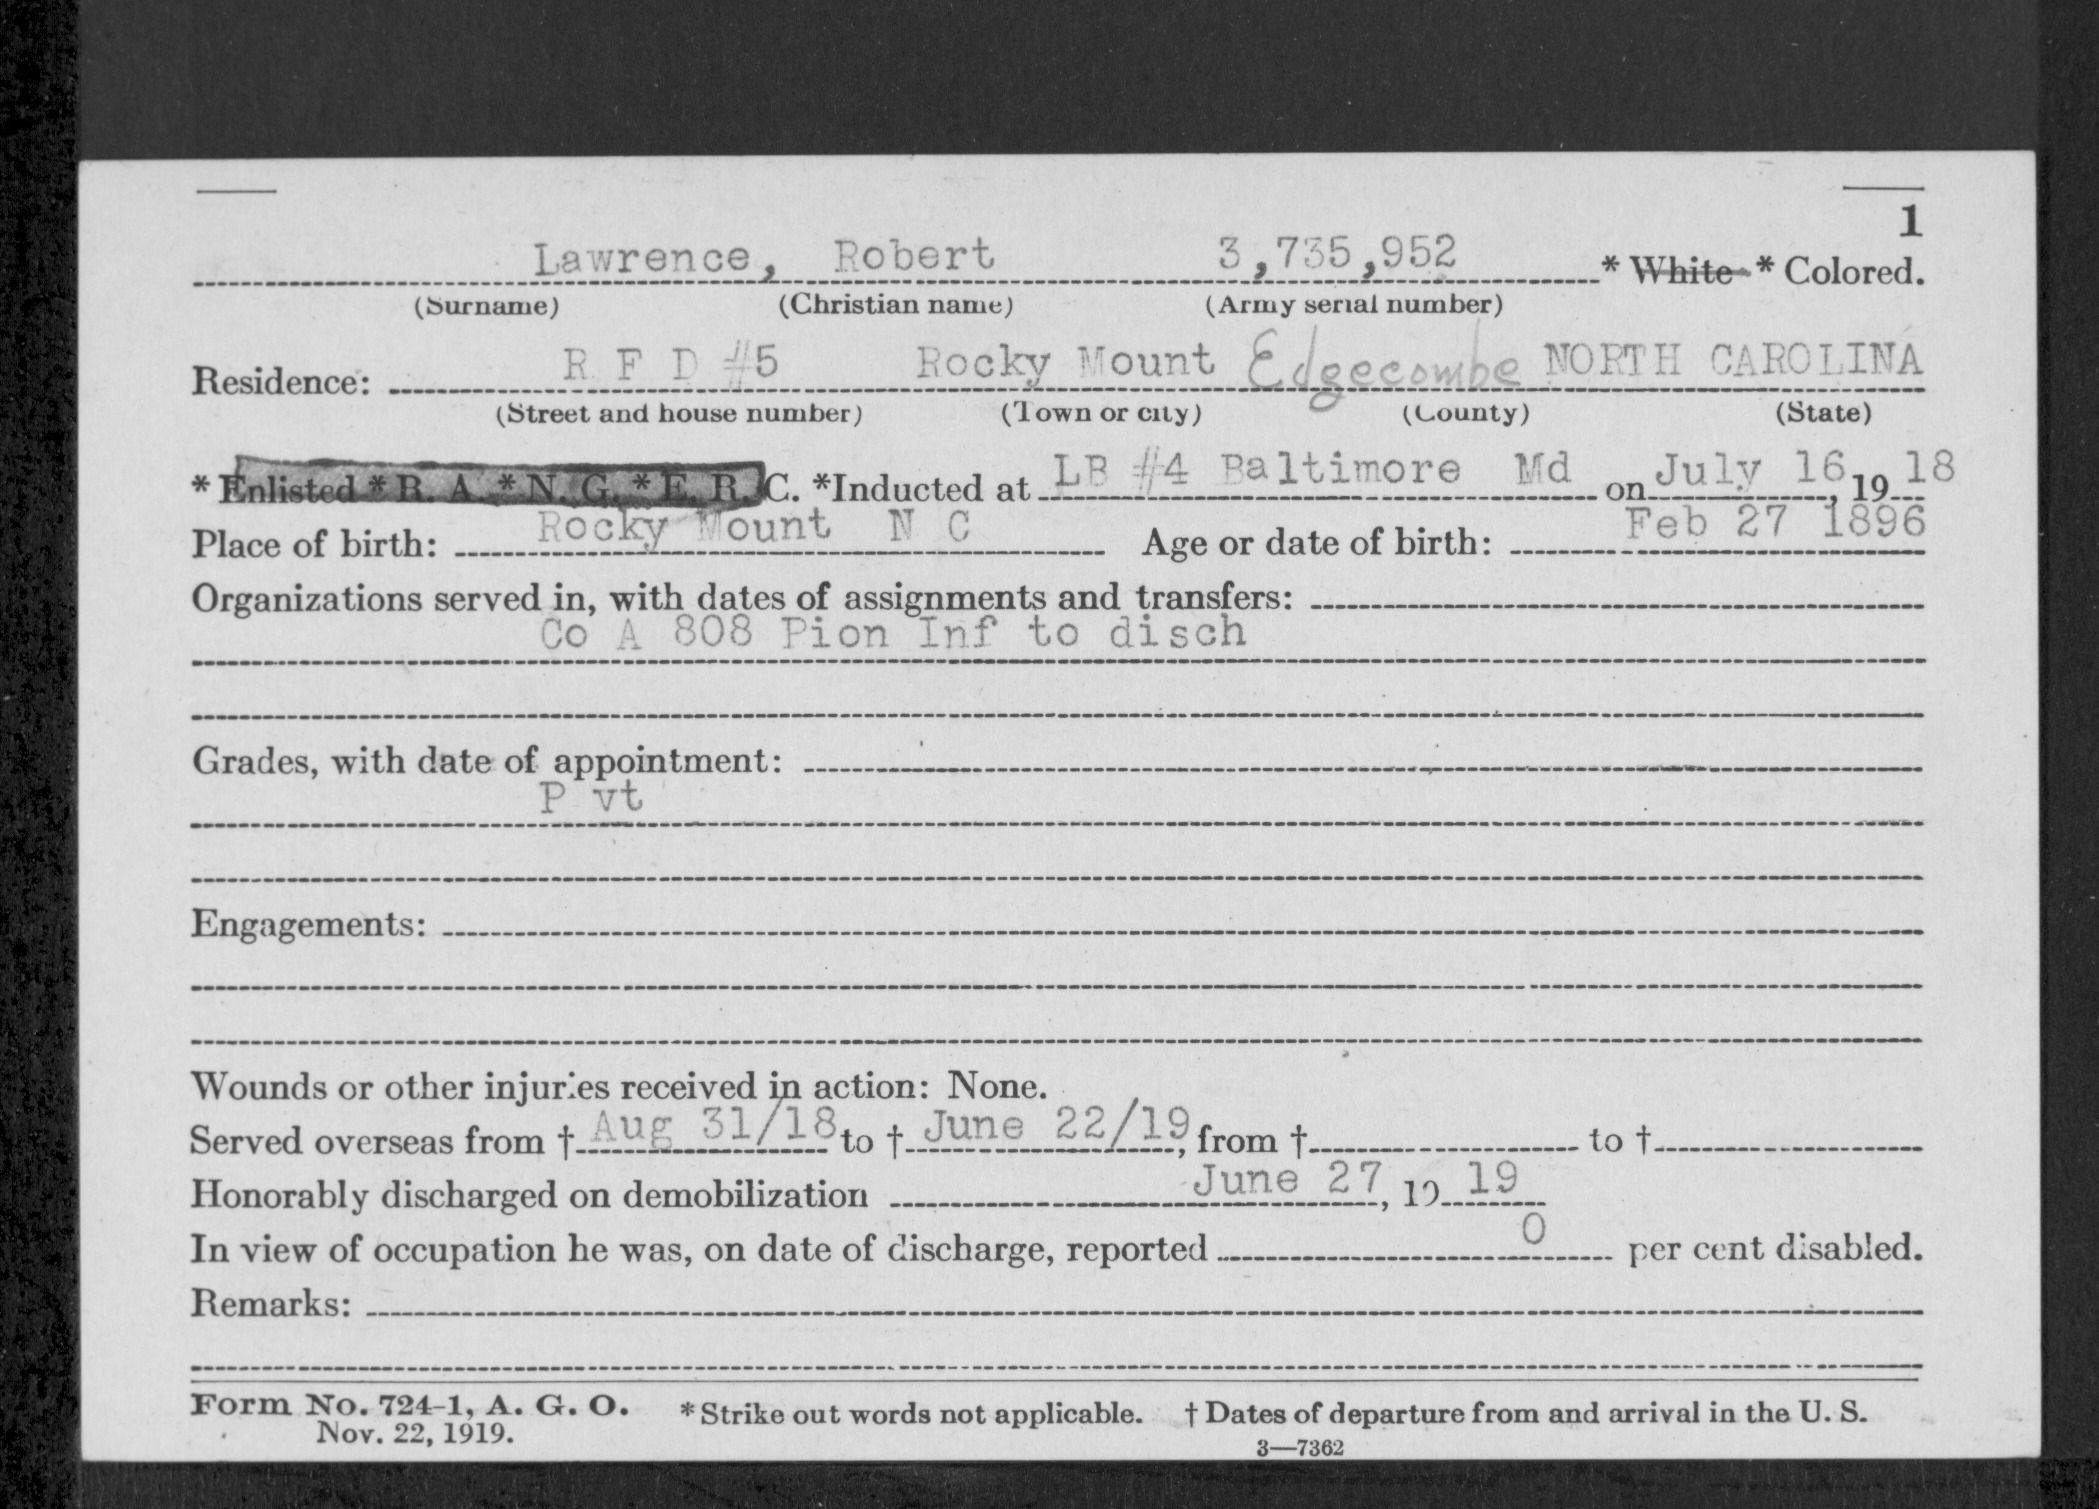 1
Lawrence, Robert 3,735,952 * White * Colored.
(Surname) (Christian name) (Army serial number)
Residence: R F D #5 Rocky Mount Edgecombe NORTH CAROLINA
(Street and house number) (Town or city) (County) (State)
* Enlisted * R. A. * N. G. * E. R. C. *Inducted at LB #4 Baltimore Md on July 16, 1918
Place of birth: Rocky Mount N C Age or date of birth: Feb 27 1896
Organizations served in, with dates of assignments and transfers:
Co A 808 Pion Inf to disch
Grades, with date of appointment:
P vt
Engagements:
Wounds or other injuries received in action: None.
Served overseas from † Aug 31/18 to † June 22/19, from † to †
Honorably discharged on demobilization June 27, 1919
In view of occupation he was, on date of discharge, reported 0 per cent disabled.
Remarks:
Form No. 724-1, A. G. O. * Strike out words not applicable. † Dates of departure from and arrival in the U. S.
Nov. 22, 1919.
3—7362